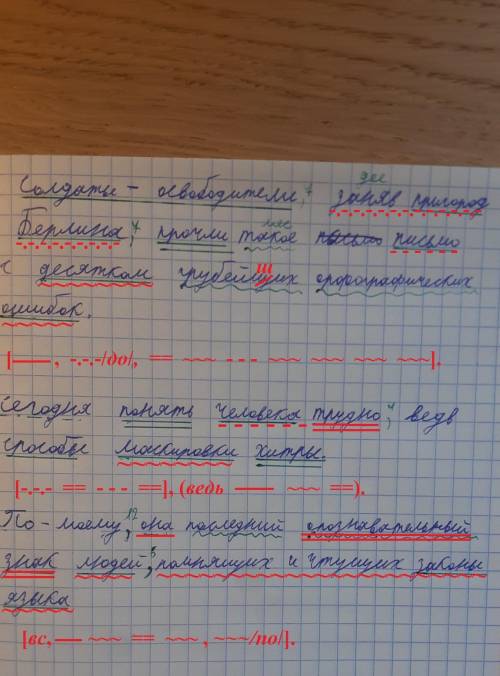 дее
Солдаты - освободители, 7 заняв пригород
мес
Берлина, 4 прочли такое письмо письмо
с десятком грубейших орфографических
ошибок.
[—— , -.-.-/до/, == ~~~ - - - ~~~ ~~~ ~~~ ~~~].
Сегодня понять человека трудно, 4 ведь
способы маскировки хитры.
[-.-.- == - - - ==], (ведь —— ~~~ ==).
По-моему, 12 она последний опознавательный
знак людей, 5 помнящих и чтущих законы
языка
[вс, — ~~~ == ~~~ , ~~~/по/].